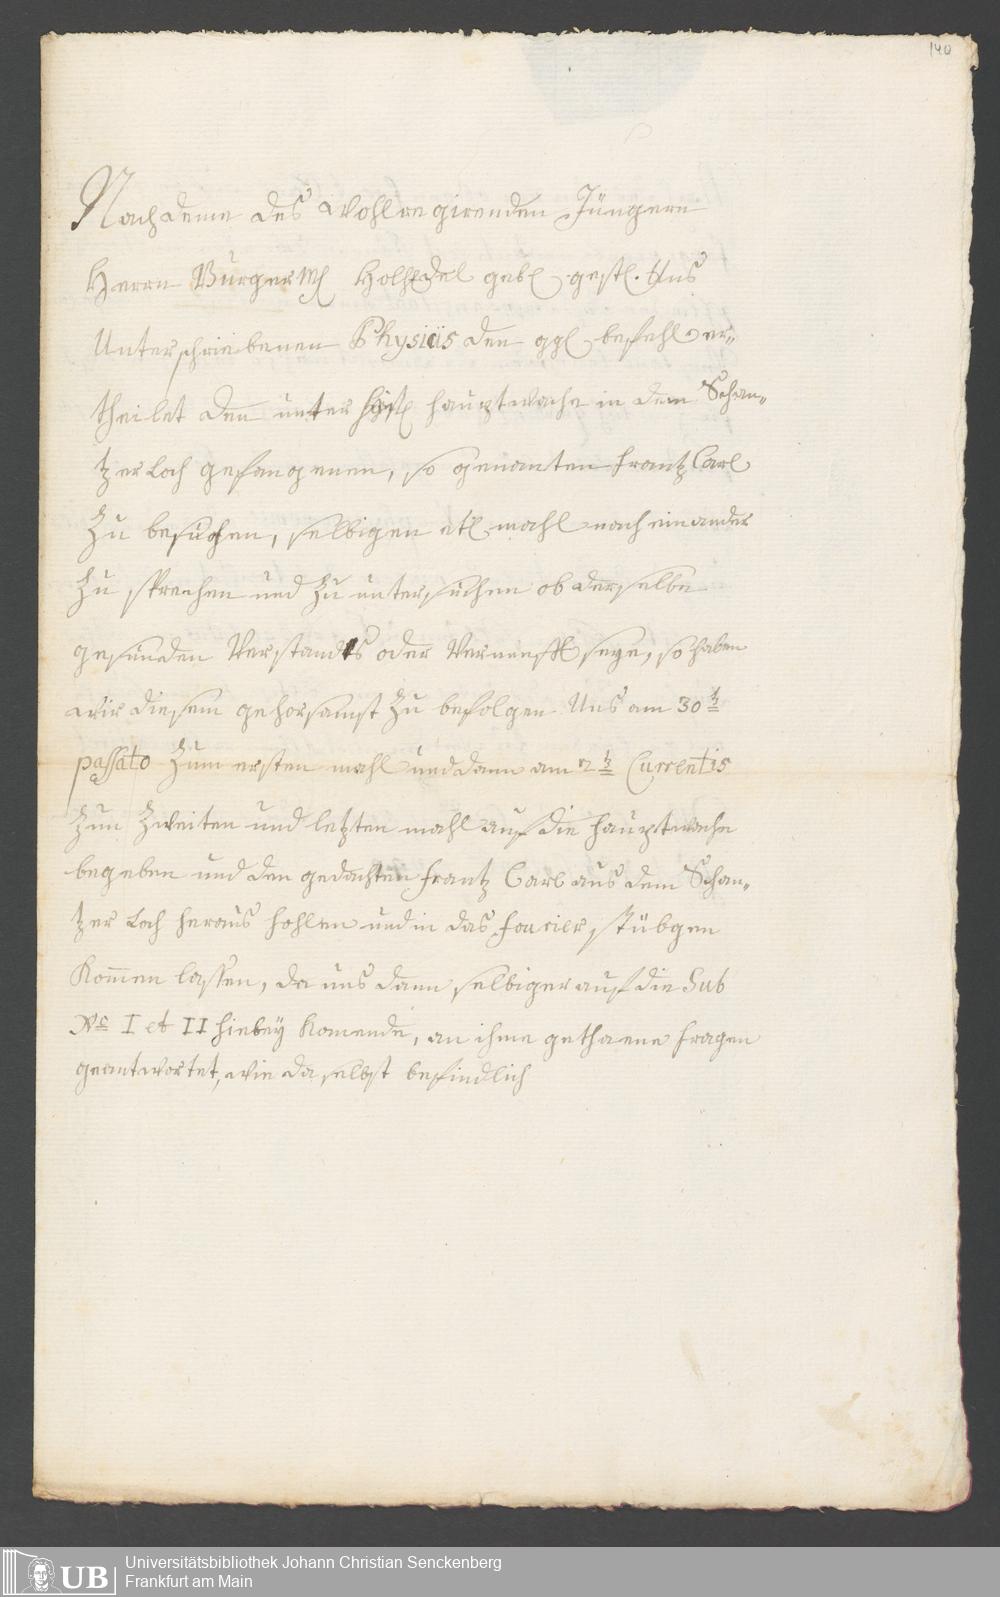 140
Nachdeme des Wohlregirenden Jüngern
Herrn Burgerm Holtzdel geb. gestr. Uns
Unterschriebenen Physicis den ggl befehl er-
theilet den unter hauptwache in dem Schan-
tzer Loch gefangenen, so genanten Frantz Carl
Zu besuchen, selbigen etl. mahl nach einander
Zu sprechen und Zu untersuchen ob derselbe
gesunden Verstandts oder Vernunfft seye, so haben
wir diesem gehorsamst Zu befolgen Uns am 30
passato Zum ersten mahl und dann am 2 Currentis
Zum Zweiten und letzten mahl auf die Hauptwache
begeben und den gedachten Frantz Carl aus dem Schan-
tzer Loch heraus hohlen und in das fourier stübgen
Kommen lassen, da uns dann selbiger auf die Sub
No I et II hiebey Komende, an ihme gethane fragen
geantwortet, wie daselbst befindlich
UB
Universitätsbibliothek Johann Christian Senckenberg
Frankfurt am Main